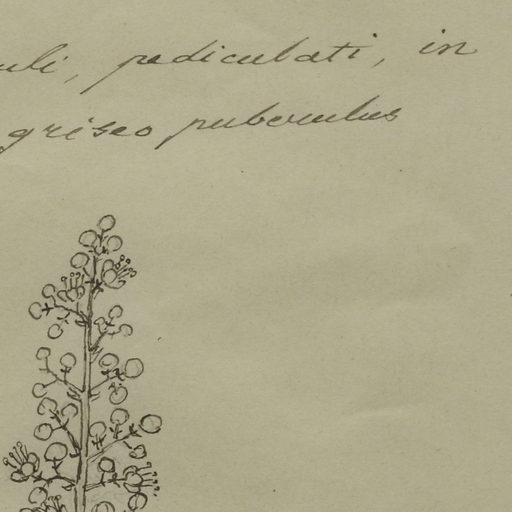 uli, pediculati, in
griseo puberulus